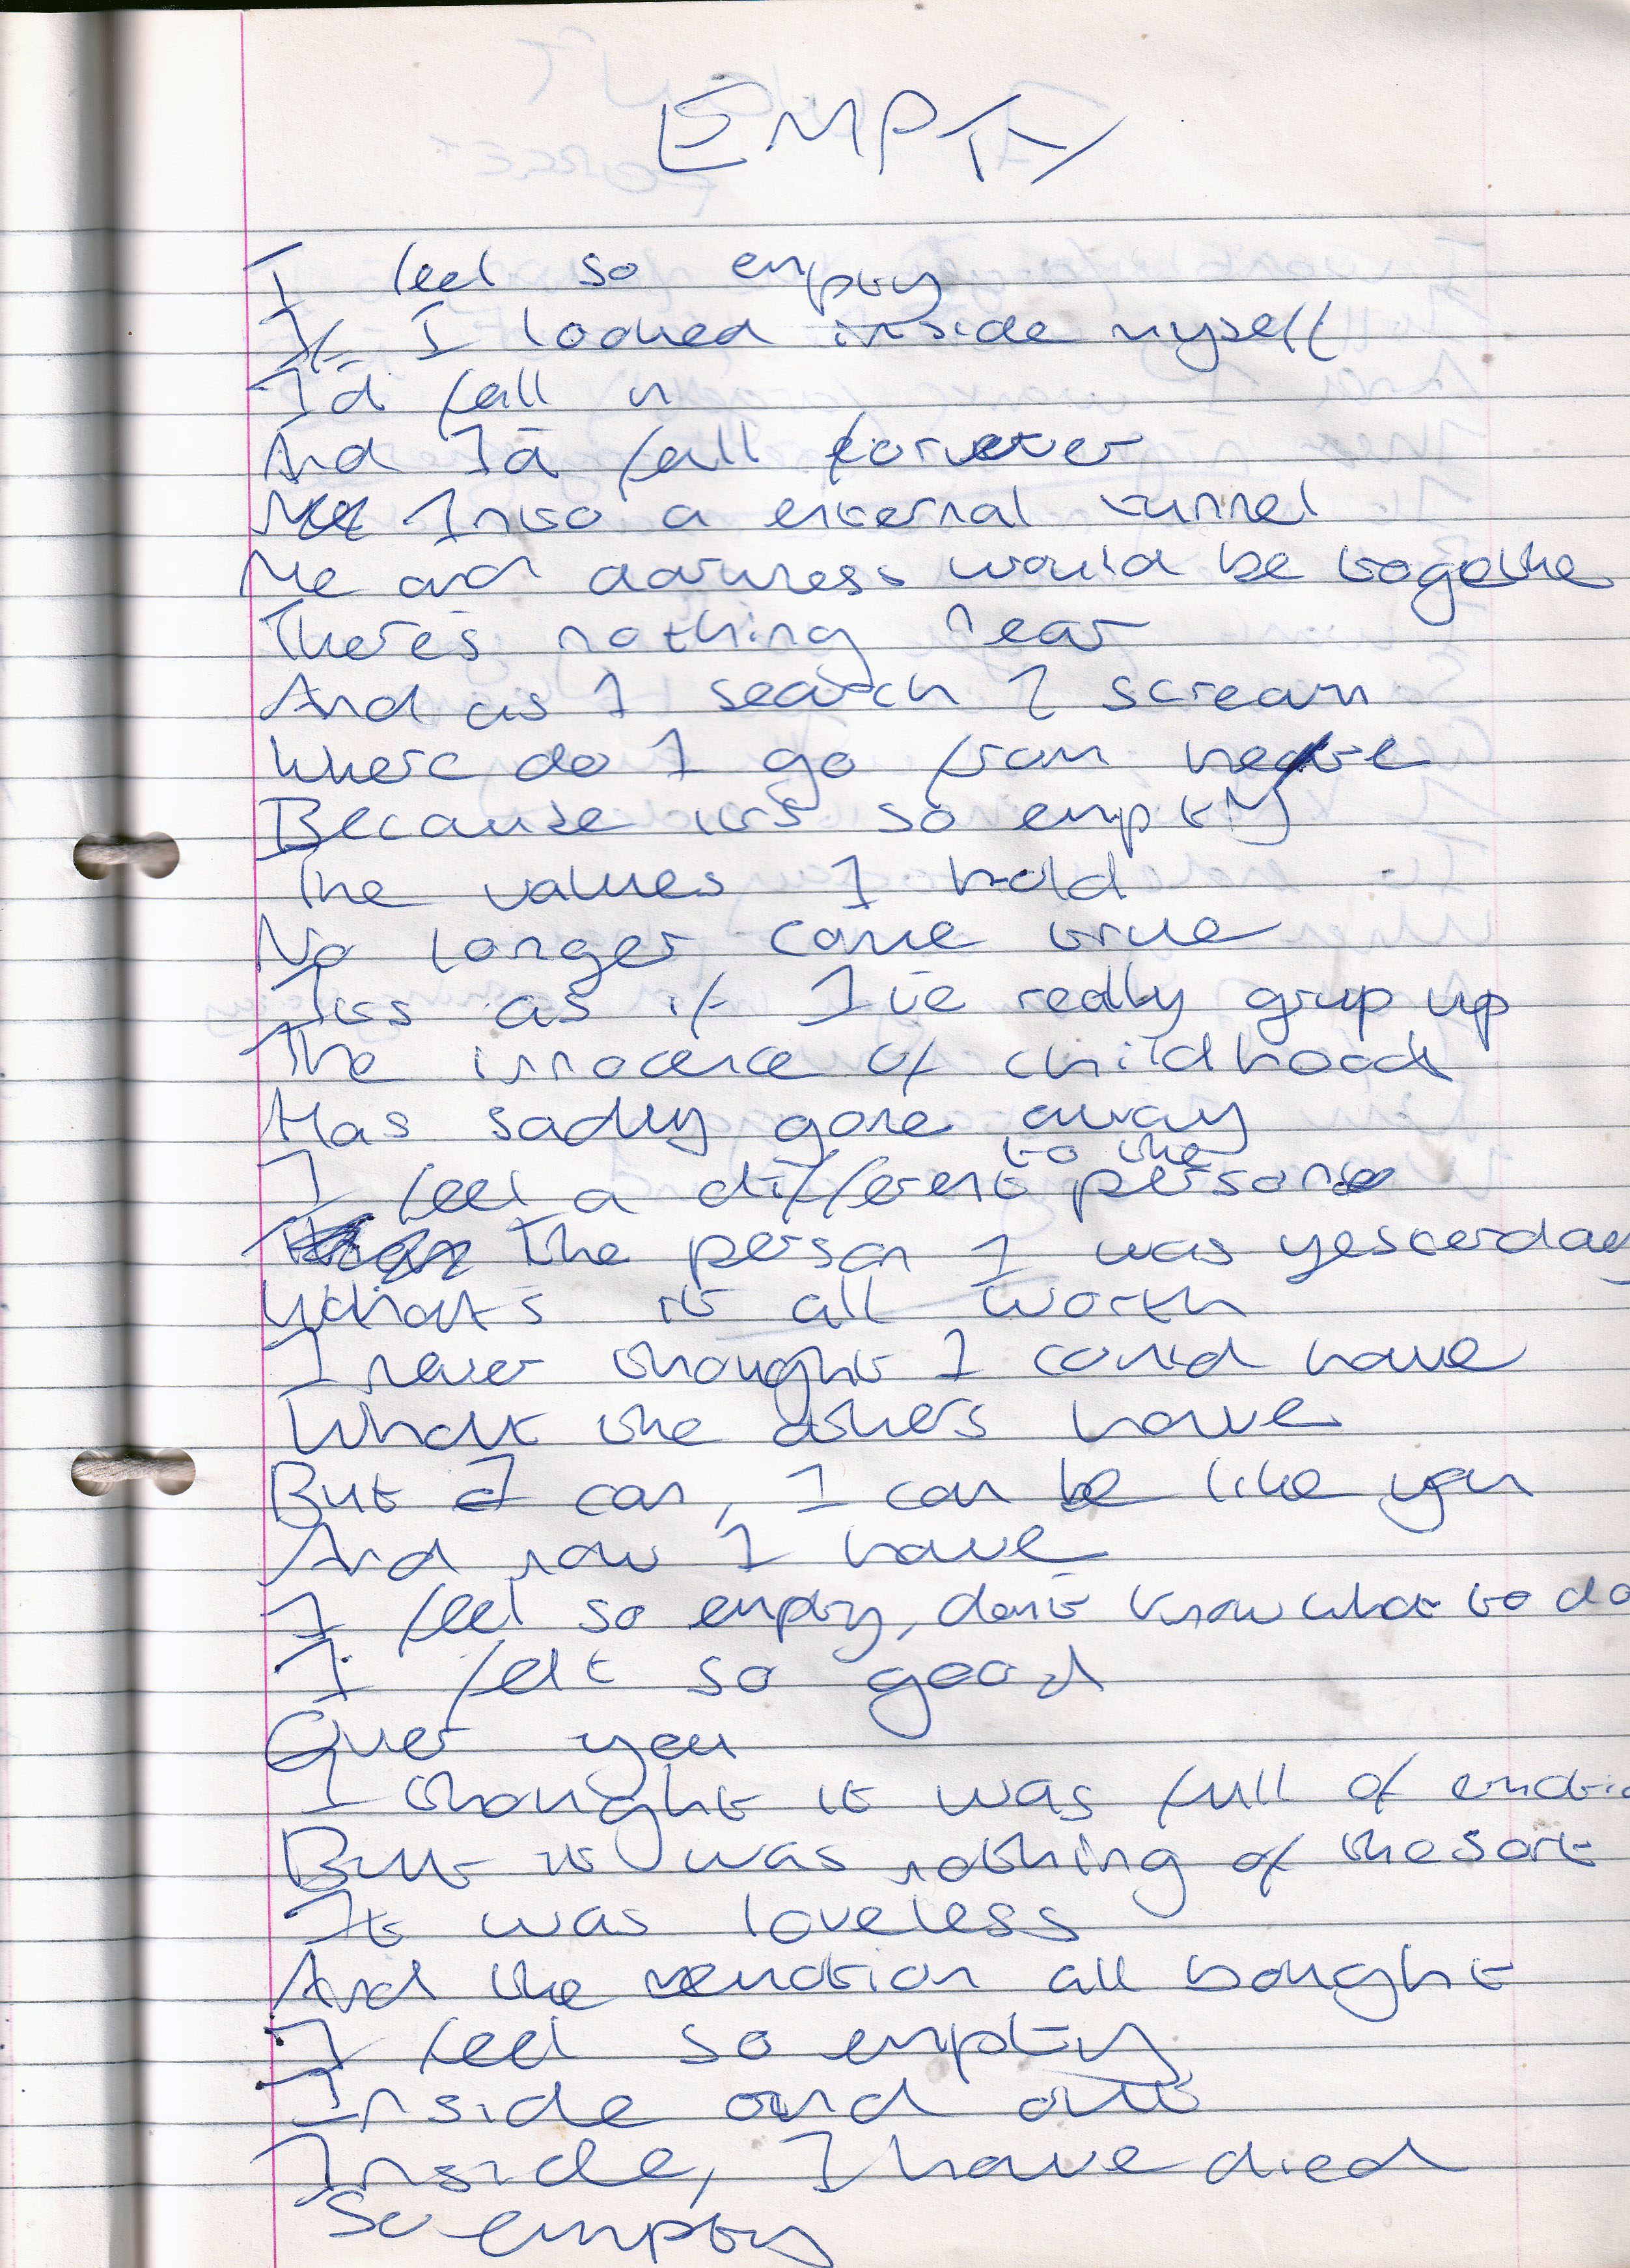 EMPTY
I feel so empty
If I looked inside myself
I'd fall in
And I'd fall forever
Into a enternal tunnel
Me and darkness would be together
There's nothing near
And as I search I scream
Where do I go from here
Because its so empty
The values I hold
No longer come true
Its as if I've really grup up
The innocence of childhood
Has sadly gone away
I feel a different to the person
The person I was yesterday
What's it all worth
I never thought I could have
What the others have
But I can, I can be like you
And now I have
I feel so empty, don't know what to do
I felt so good
Over you
I thought it was full of emotio
But it was nothing of the sort
It was loveless
And the emotion all bought
I feel so empty
Inside and out
Inside, I have died
So empty